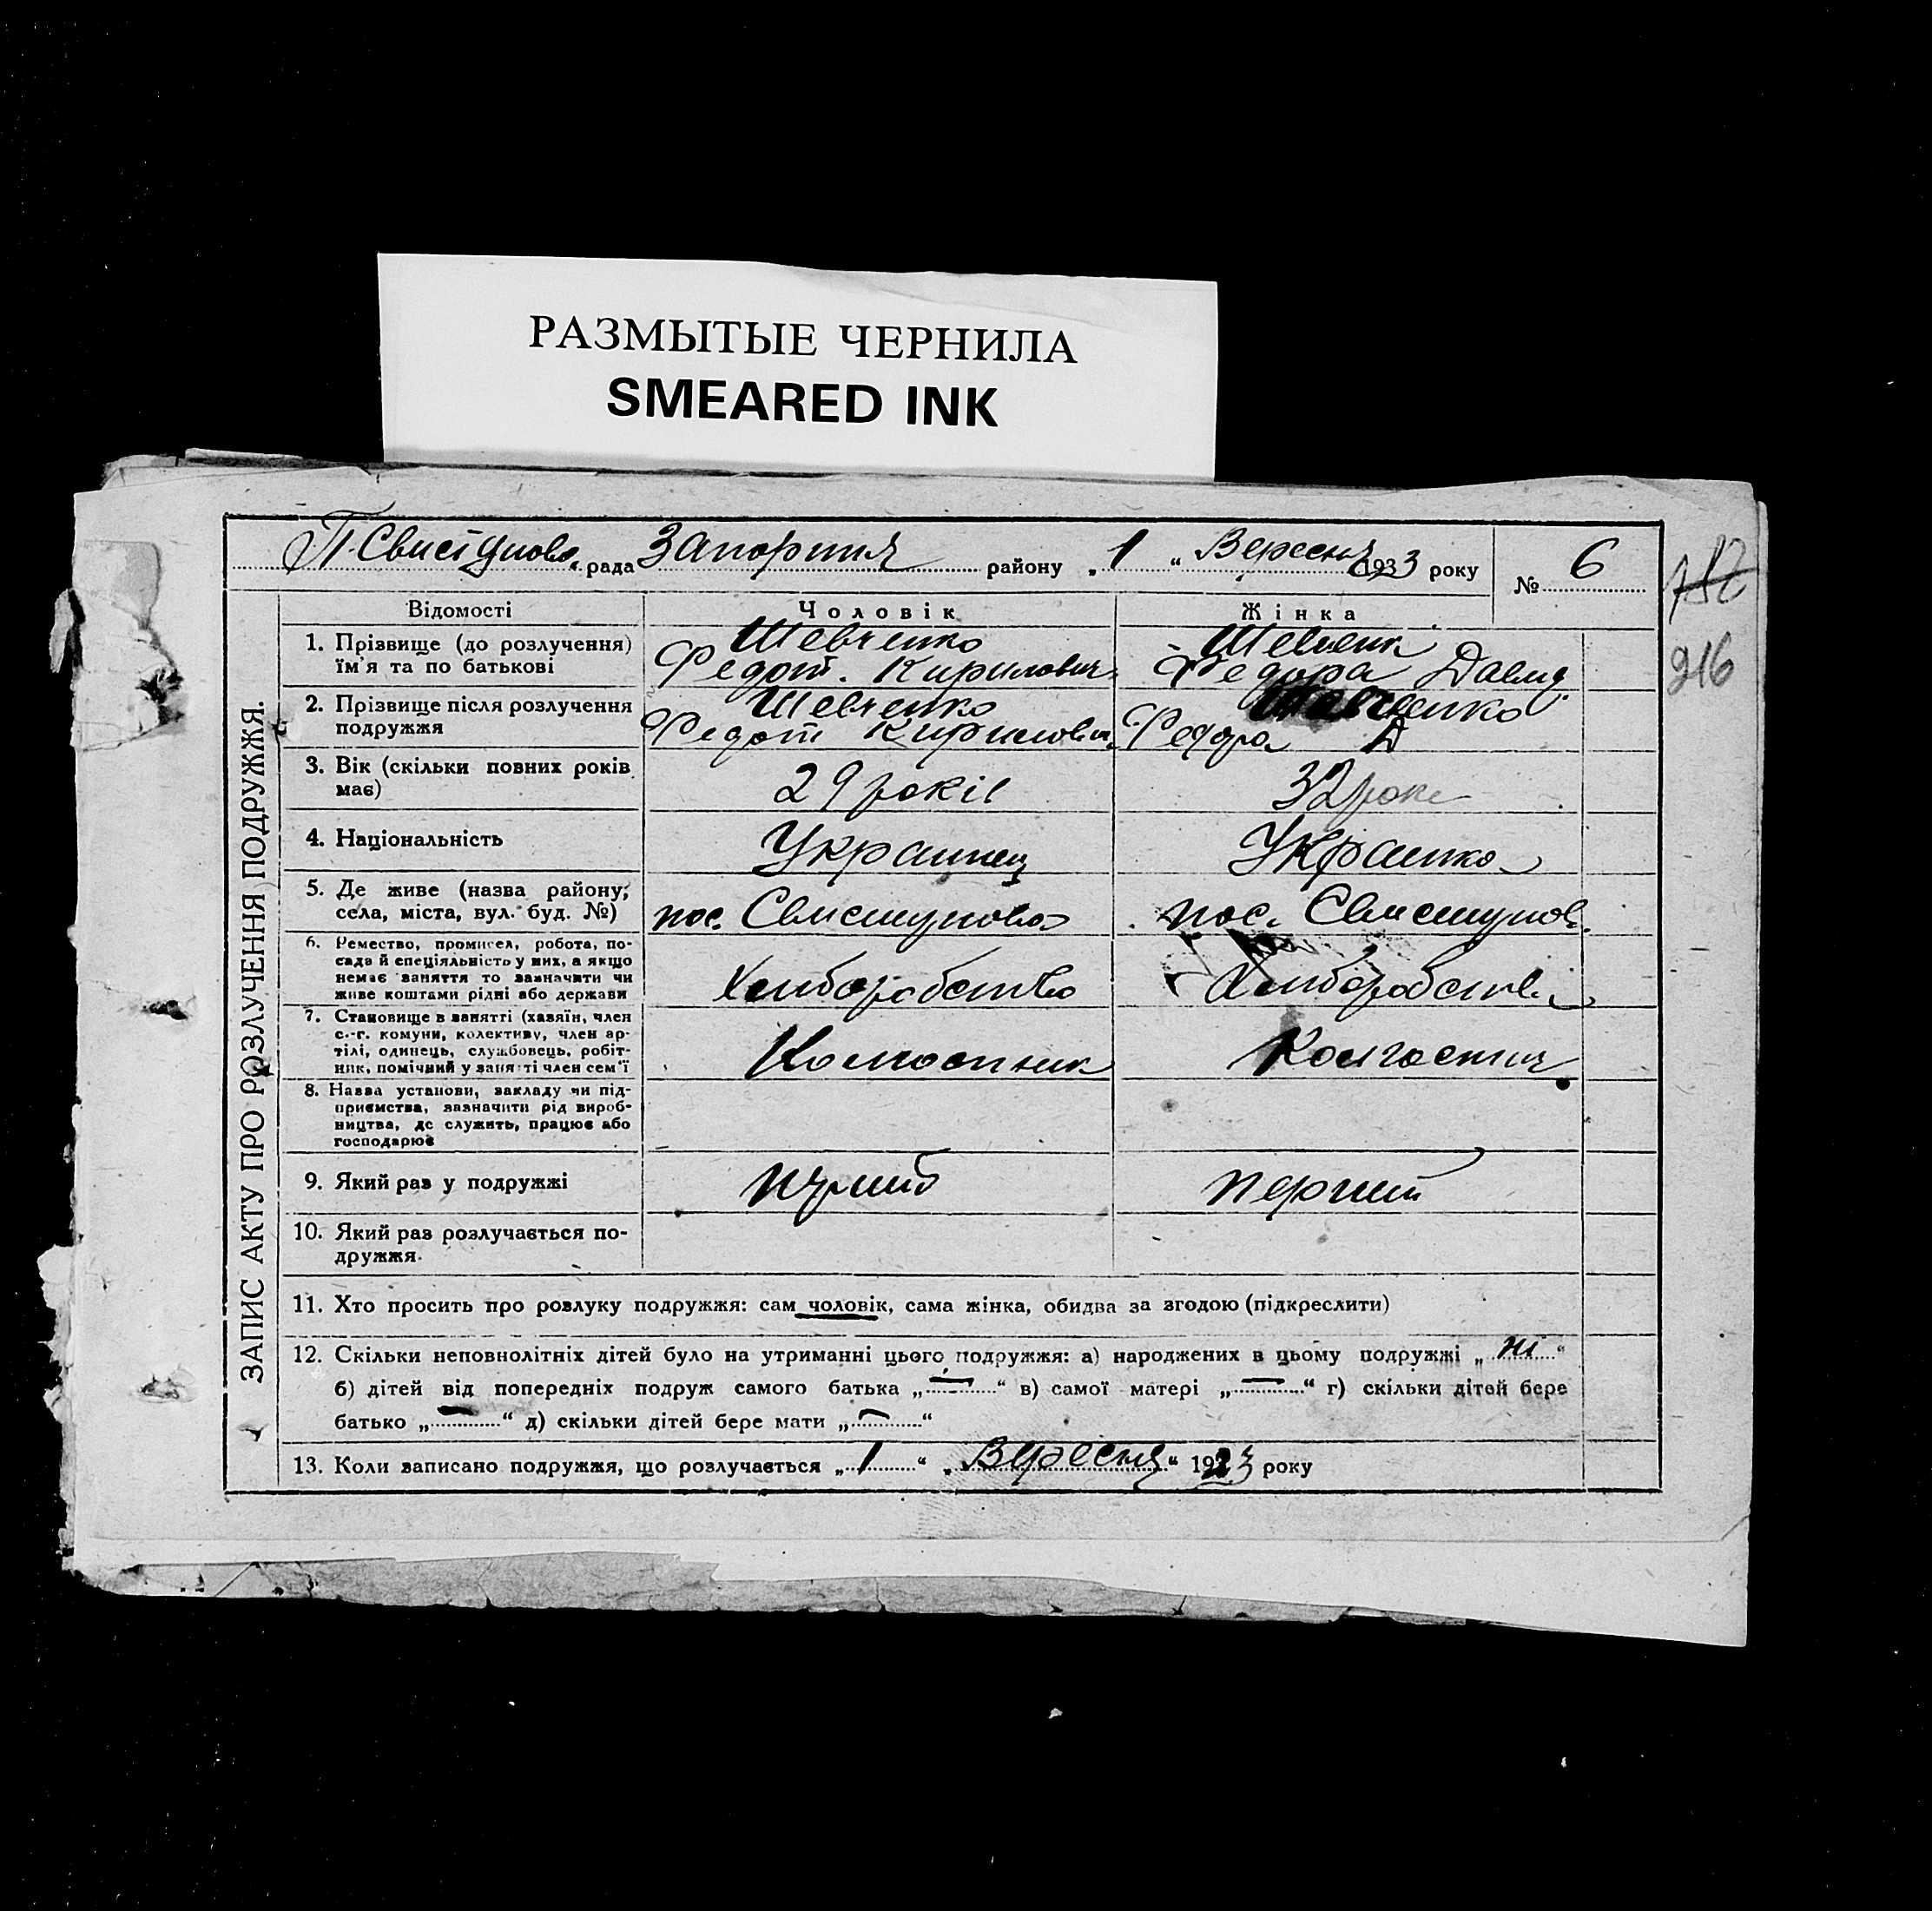 РАЗМЫТЫЕ ЧЕРНИЛА
SMEARED INK
П. Свистунова рада Запоріжжя району „ 1 “ Вересня 1933 року № 6
216
ЗАПИС АКТУ ПРО РОЗЛУЧЕННЯ ПОДРУЖЖЯ.
Відомості Чоловік Жінка
1. Прізвище (до розлучення) їм'я та по батькові
Шевченко
Федот. Кирилович
Шевченк
Федора Давид
2. Прізвище після розлучення подружжя
Шевченко
Федот Кирилович
Шевченко
Федора Д
3. Вік (скільки повних років має)
29 років
32 роки
4. Національність
Украинец
Украинка
5. Де живе (назва району, села, міста, вул. буд. №)
пос. Свистунова
пос. Свистунов
6. Ремество, промисел, робота, посада й спеціяльність у них, а якщо немає заняття то зазначити чи живе коштами рідні або держави
Хлиборобство
Хлиборобств
7. Становище в занятті (хазяїн, член с.-г. комуни, колективу, член артілі, одинець, службовець, робітник, помічний у занятті член сем'ї
Колгоспник
Колгоспни
8. Назва установи, закладу чи підприємства, зазначити рід виробництва, де служить, працює або господарює
9. Який раз у подружжі
перший
10. Який раз розлучається подружжя.
11. Хто просить про розлуку подружжя: сам чоловік, сама жінка, обидва за згодою (підкреслити)
12. Скільки неповнолітніх дітей було на утриманні цього подружжя: а) народжених в цьому подружжі „ ні “
б) дітей від попередніх подруж самого батька „ — “ в) самої матері „ — “ г) скільки дітей бере
батько „ — “ д) скільки дітей бере мати „ — “
13. Коли записано подружжя, що розлучається „ 1 “ „ Вересня “ 1923 року